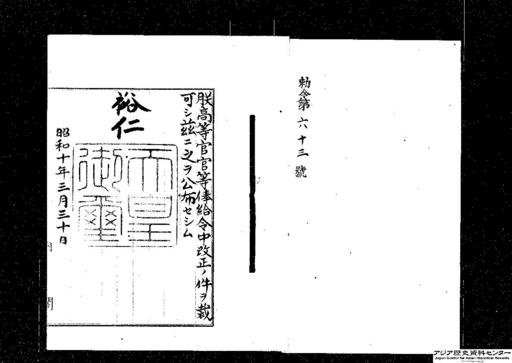 勅令第六十三號
朕高等官官等俸給令中改正ノ件ヲ裁
可シ茲ニ之ヲ公布セシム
裕仁
天皇
御璽
昭和十年三月三十日
内閣
アジア歴史資料センター
Japan Center for Asian Historical Records